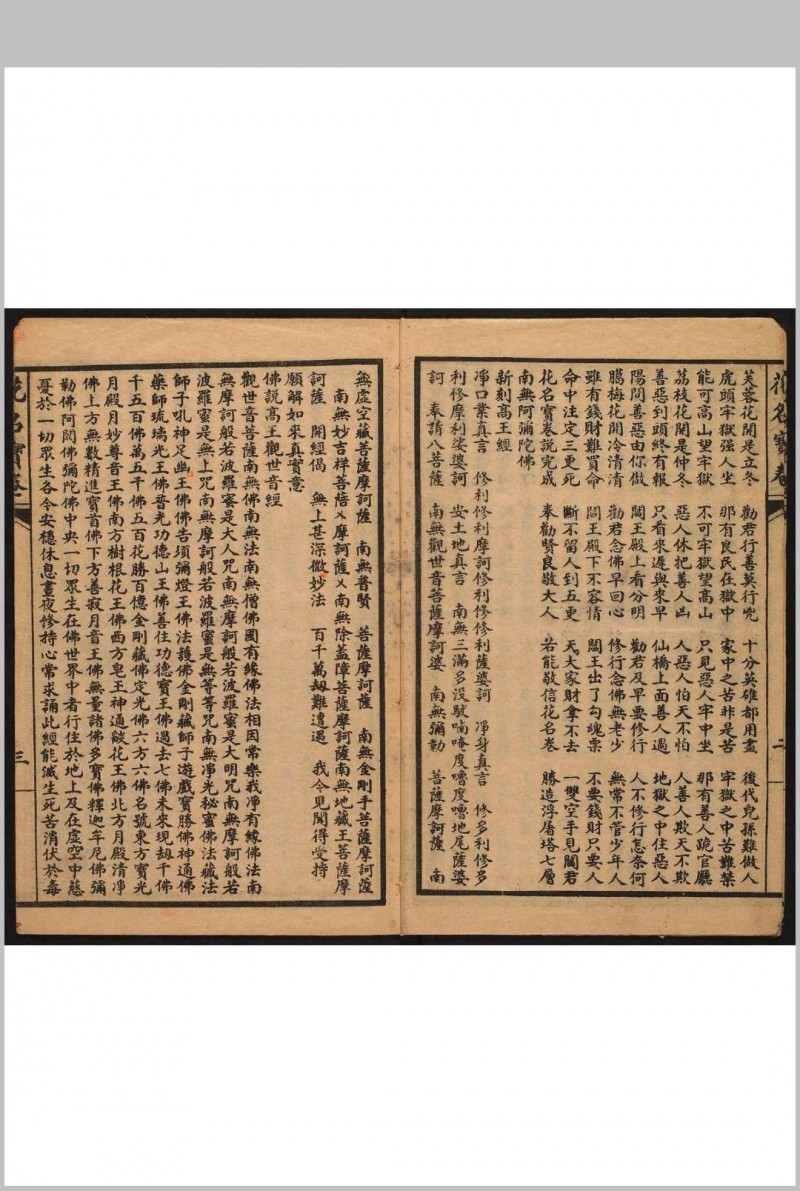 芙蓉花開是立冬　勸君行善莫行兇　十分英雄都用盡　後代兒孫難做人
虎頭牢獄强人坐　那有良民在獄中　家中之苦非是苦　牢獄之中苦難禁
能可高山望牢獄　不可牢獄望高山　只見惡人牢中坐　那有善人跪官廳
荔枝花開是仲冬　惡人休把善人凶　人惡人怕天不怕　人善人欺天不欺
善惡到頭終有報　只看來遲與來早　仙橋上面善人過　地獄之中住惡人
陽間善惡由你做　閻王殿上看分明　勸君及早要修行　人不修行怎奈何
臘梅花開冷清清　勸君念佛早回心　修行念佛無老少　無常不管少年人
雖有錢財難買命　閻王殿下不容情　閻王出了勾魂票　不要錢財只要人
命中注定三更死　斷不留人到五更　天大家財拿不去　一雙空手見閻君
花名寶卷說完成　奉勸賢良敬大人　若能敬信花名卷　勝造浮屠塔七層
南無阿彌陀佛
新刻高王經
凈口業真言　修利修利摩訶修利修修利薩婆訶　凈身真言　修多利修多
利修摩利娑婆訶　安土地真言　南無三滿多没馱喃唵度嚕度嚕地尾薩婆
訶　奉請八菩薩　南無觀世音菩薩摩訶婆　南無彌勒　菩薩摩訶薩　南
花名寶卷
二
無虛空藏菩薩摩訶薩　南無普賢　菩薩摩訶薩　南無金剛手菩薩摩訶薩
南無妙吉祥菩薩乂摩訶薩乂南無除盖障菩薩摩訶薩南無地藏王菩薩摩
訶薩　開經偈　無上甚深微妙法　百千萬刼難遭遇　我今見聞得受持
願解如來真實意
佛説高王觀世音經
觀世音菩薩南無佛南無法南無僧佛國有緣佛法相因常樂我凈有緣佛法南
無摩訶般若波羅蜜是大人咒南無摩訶般若波羅蜜是大明咒南無摩訶般若
波羅蜜是無上咒南無摩訶般若波羅蜜是無等等咒南無凈光秘蜜佛法藏法
師子吼神足幽王佛佛告須彌燈王佛法護佛金剛藏師子遊戲寶勝佛神通佛
藥師琉璃光王佛普光功德山王佛善住功德寶王佛過去七佛未來現刼千佛
千五百佛萬五千佛五百花勝百億金剛藏佛定光佛六方六佛名號東方寶光
月殿月妙尊音王佛南方樹根花王佛西方皂王神通燄花王佛北方月殿清凈
佛上方無數精進寶首佛下方善寂月音王佛無量諸佛多寶佛釋迦牟尼佛彌
勒佛阿閦佛彌陀佛中央一切眾生在佛世界中者行住於地上及在虛空中慈
憂於一切眾生各令安穩休息晝夜修持心常求誦此經能滅生死苦消伏於毒
花名寶卷
三